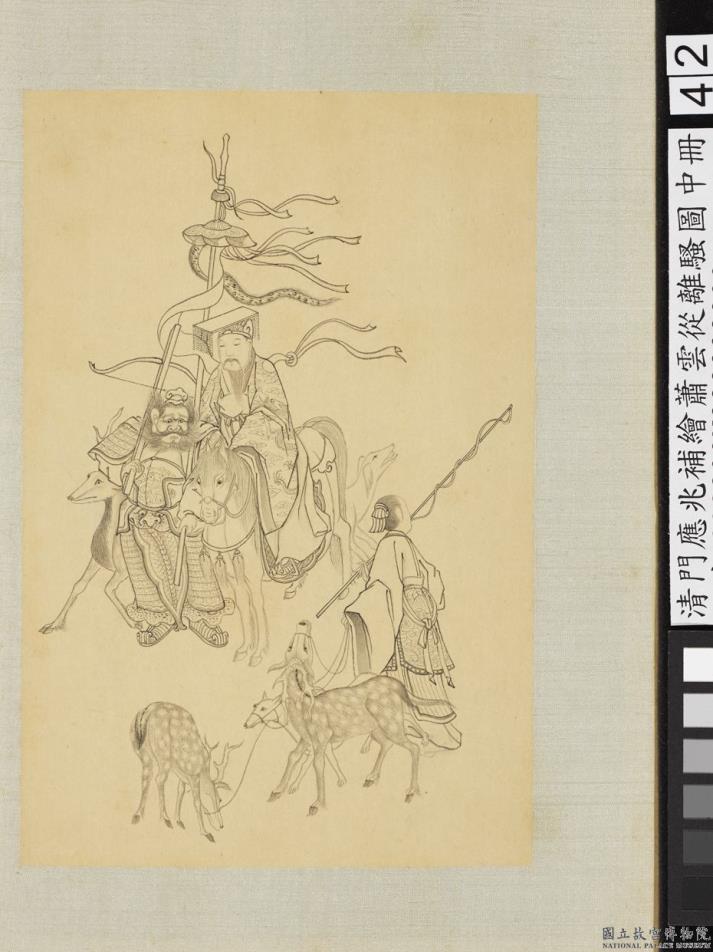 42
清門應兆補繪蕭雲從離騷圖中冊
國立故宮博物院
NATIONAL PALACE MUSEUM